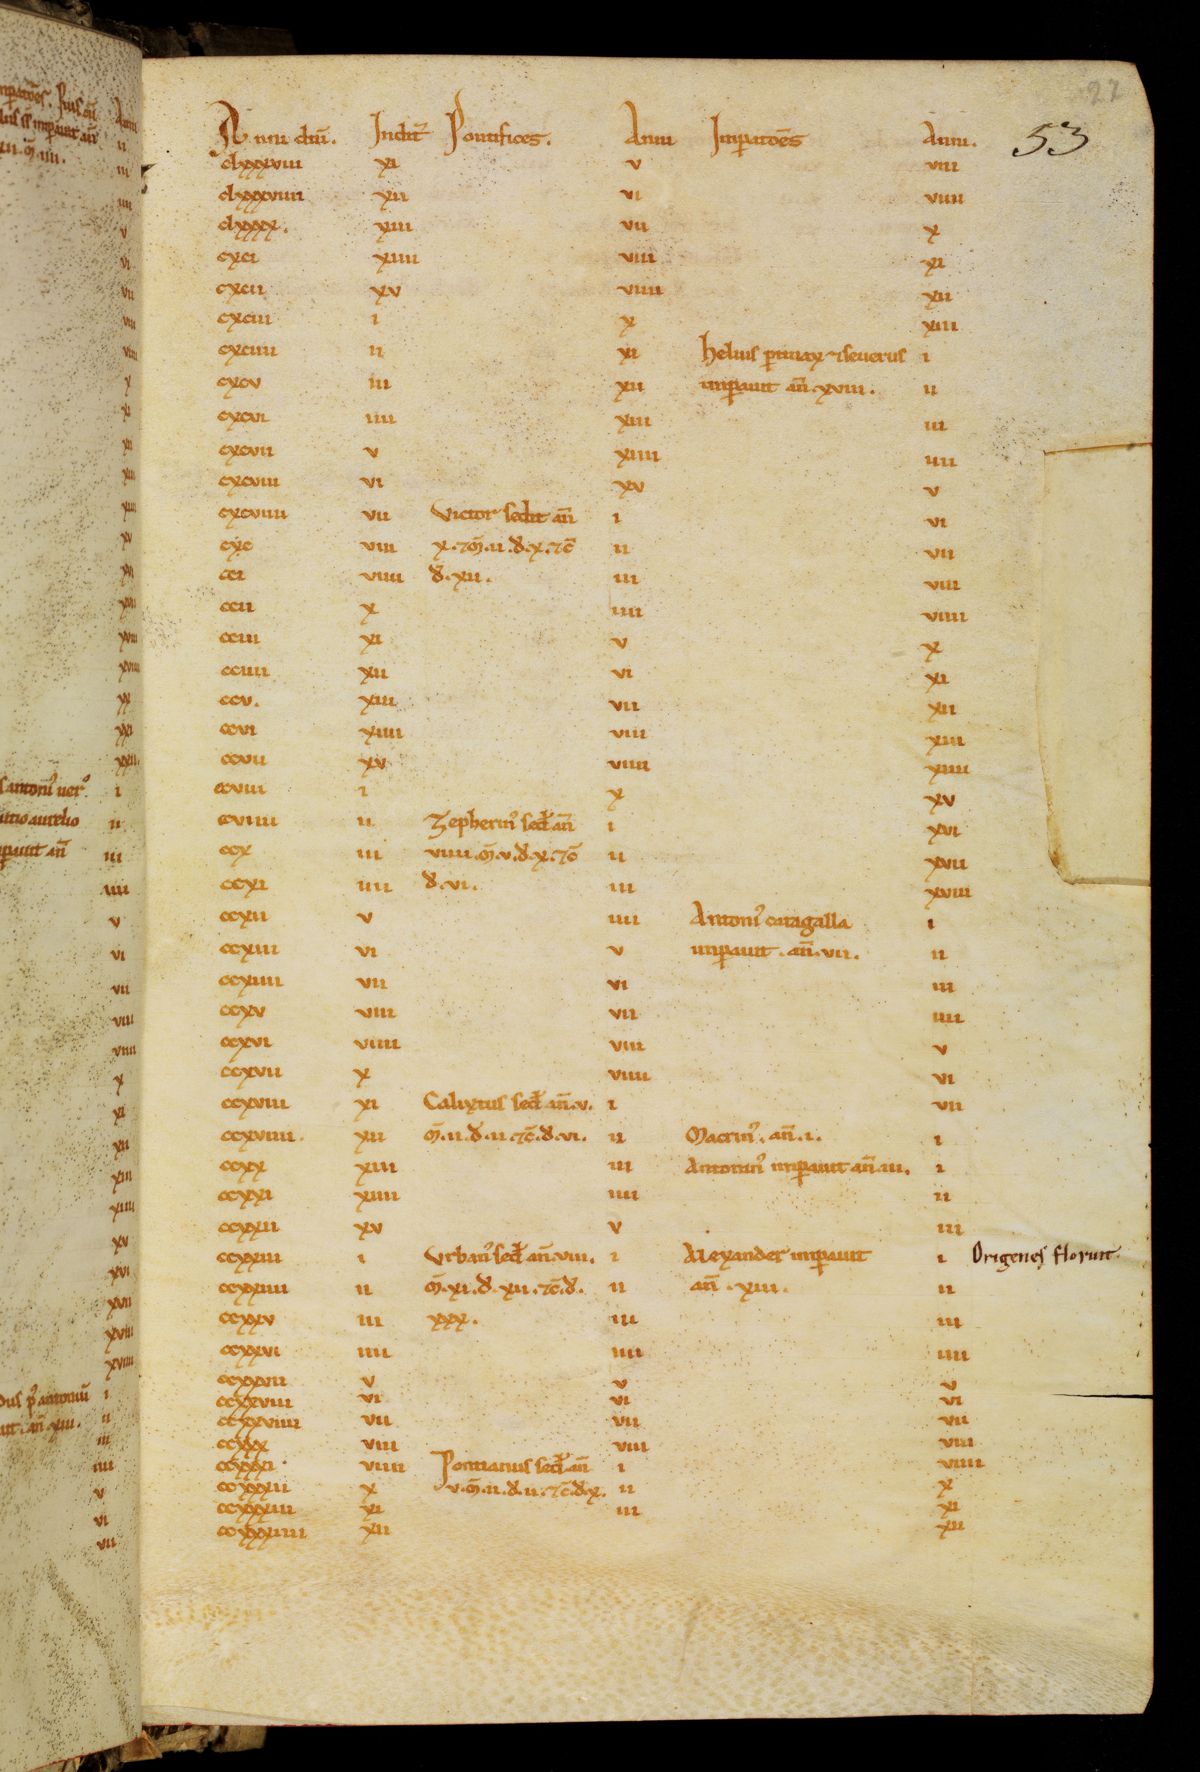 22
53
Anni dñi. Indict̃ Pontifices. Anni Imp̱atoẽs Anni.
clxxxviii xi v viii
clxxxviiii xii vi viiii
clxxxx. xiii vii x
cxci xiiii viii xi
cxcii xv viiii xii
cxciii i x xiii
cxciiii ii xi helius p̱tinax ⁊ seuerus i
cxcv iii xii imp̱auit añ. xviii. ii
cxcvi iiii xiii iii
cxcvii v xiiii iiii
cxcviii vi xv v
cxcviiii vii Victor sedit añ i vi
cxc viii x. ⁊ m̃. ii. d. x. ⁊ c̃ ii vii
cci viiii d. xii. iii viii
ccii x iiii viiii
cciii xi v x
cciiii xii vi xi
ccv. xiii vii xii
ccvi xiiii viii xiii
ccvii xv viiii xiiii
ccviii i x xv
ccviiii ii Zepherin᷒ sed̃ añ i xvi
ccx iii viiii. m̃. v. d. x. ⁊ c̃ ii xvii
ccxi iiii d. vi. iii xviii
ccxii v iiii Antoni᷒ caragalla i
ccxiii vi v imp̱auit. añ. vii. ii
ccxiiii vii vi iii
ccxv viii vii iiii
ccxvi viiii viii v
ccxvii x viiii vi
ccxviii xi Calixtus sed̃ añ. v. i vii
ccxviiii. xii m̃. ii. d. ii. ⁊ c̃. d. vi. ii Macrin᷒. añ. i. i
ccxx xiii iii Antonin᷒ imp̱auit añ. iii. i
ccxxi xiiii iiii ii
ccxxii xv v iii
ccxxiii i Vrban᷒ sed̃ añ. viii. i Alexander imp̱auit i Origenes floruit
ccxxiiii ii m̃. xi. d. xii. ⁊ c̃. d. ii añ. xiii. ii
ccxxv iii xxx. iii iii
ccxxvi iiii iiii iiii
ccxxvii v v v
ccxxviii vi vi vi
ccxxviiii vii vii vii
ccxxx viii viii viii
ccxxxi. viiii Pontianus sed̃ añ i viiii
ccxxxii x v. m̃. ii. d. ii. ⁊ c̃. d. x. ii x
ccxxxiii xi iii xi
ccxxxiiii xii xii